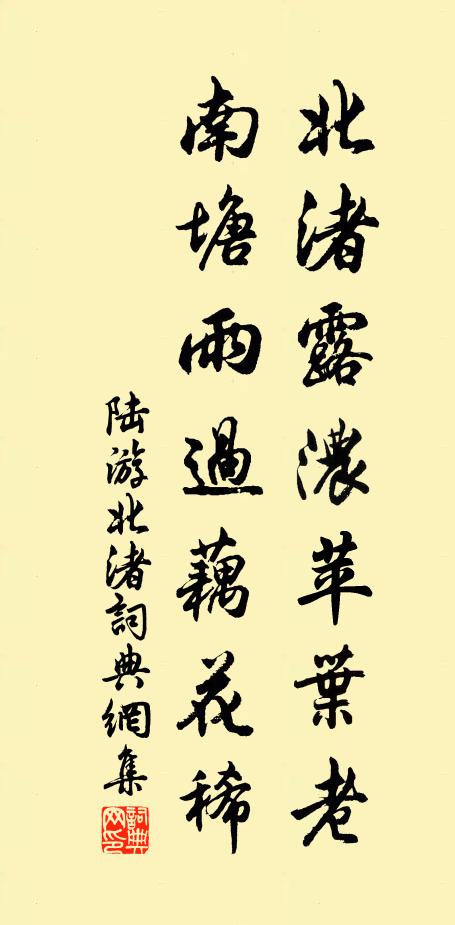 北渚露濃苹葉老
南塘雨過藕花稀
陆游北渚詞典網集
詞典网印